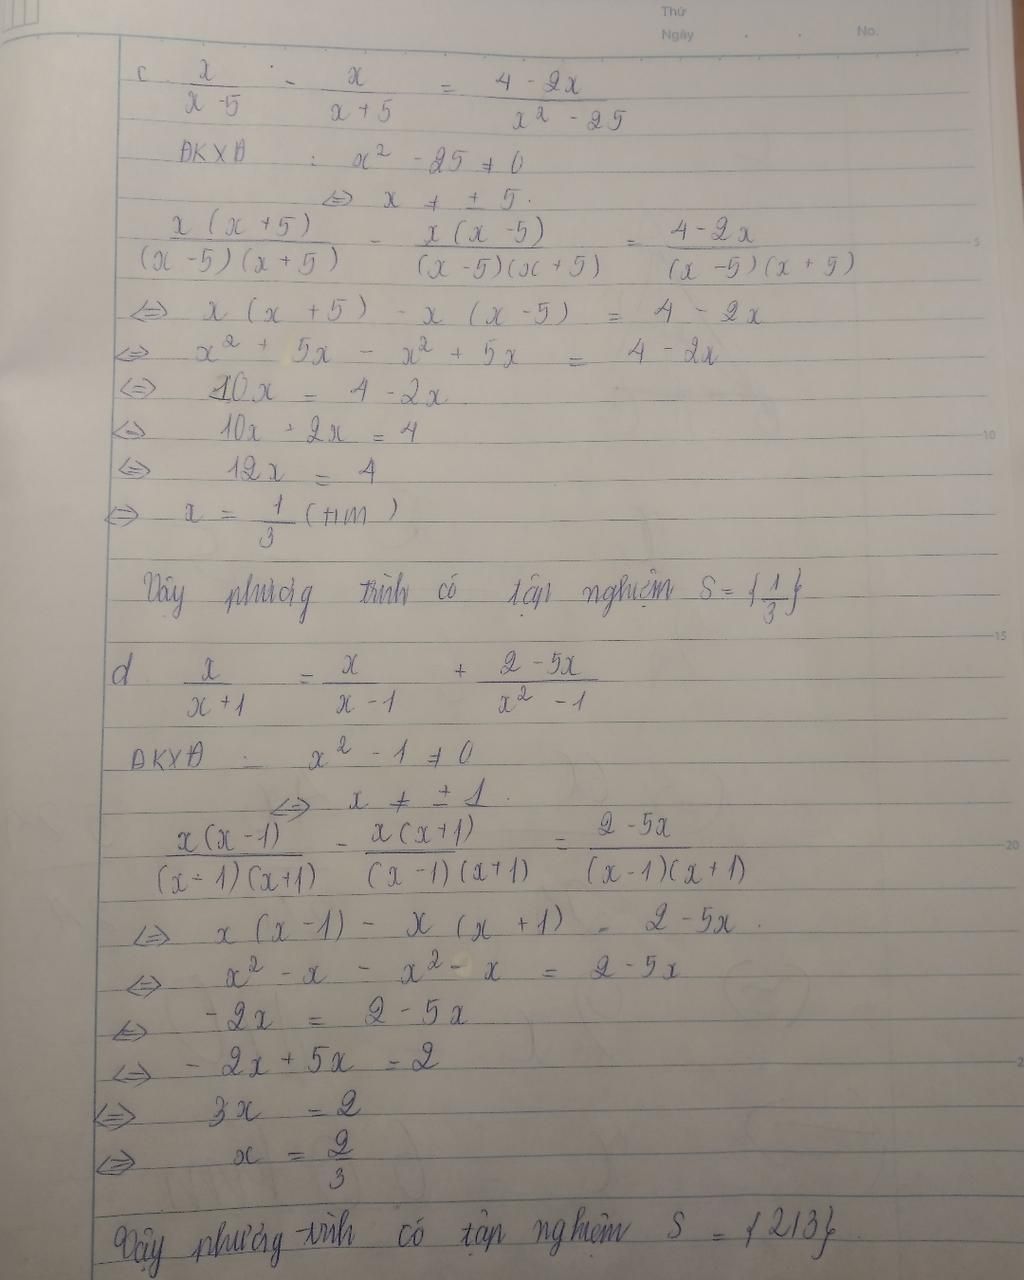 Thứ
Ngày . . No.
c x/(x-5) - x/(x+5) = (4-2x)/(x² - 25)
ĐKXĐ : x² - 25 ≠ 0
⇔ x ≠ ± 5.
x(x+5)/((x-5)(x+5)) - x(x-5)/((x-5)(x+5)) = (4-2x)/((x-5)(x+5))
5
⇔ x(x+5) - x(x-5) = 4 - 2x
⇔ x² + 5x - x² + 5x = 4 - 2x
⇔ 10x = 4 - 2x
⇔ 10x + 2x = 4
10
⇔ 12x = 4
⇔ x = 1/3 (tm)
Vậy phương trình có tập nghiệm S = {1/3}
15
d x/(x+1) = x/(x-1) + (2-5x)/(x² - 1)
ĐKXĐ : x² - 1 ≠ 0
⇔ x ≠ ± 1.
x(x-1)/((x-1)(x+1)) - x(x+1)/((x-1)(x+1)) = (2-5x)/((x-1)(x+1))
20
⇔ x(x-1) - x(x+1) = 2 - 5x.
⇔ x² - x - x² - x = 2 - 5x
⇔ -2x = 2 - 5x
⇔ -2x + 5x = 2
⇔ 3x = 2
⇔ x = 2/3
Vậy phương trình có tập nghiệm S = {2/3}